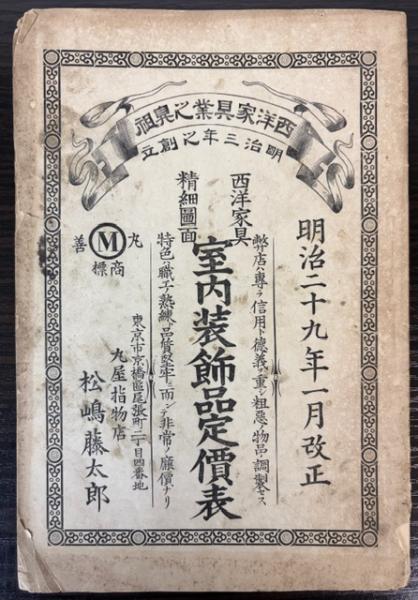 西洋家具業之鼻祖
明治三年之創立
明治二十九年一月改正
弊店ハ專ラ信用ト德義ヲ重シ粗惡ノ物品ヲ調製セス
西洋家具
精細圖面
室内装飾品定價表
特色ハ職工ノ熟練品質堅牢ニ而シテ非常ノ廉價ナリ
丸
M
善
商標
東京市京橋區尾張町二丁目四番地
丸屋指物店
松嶋藤太郎